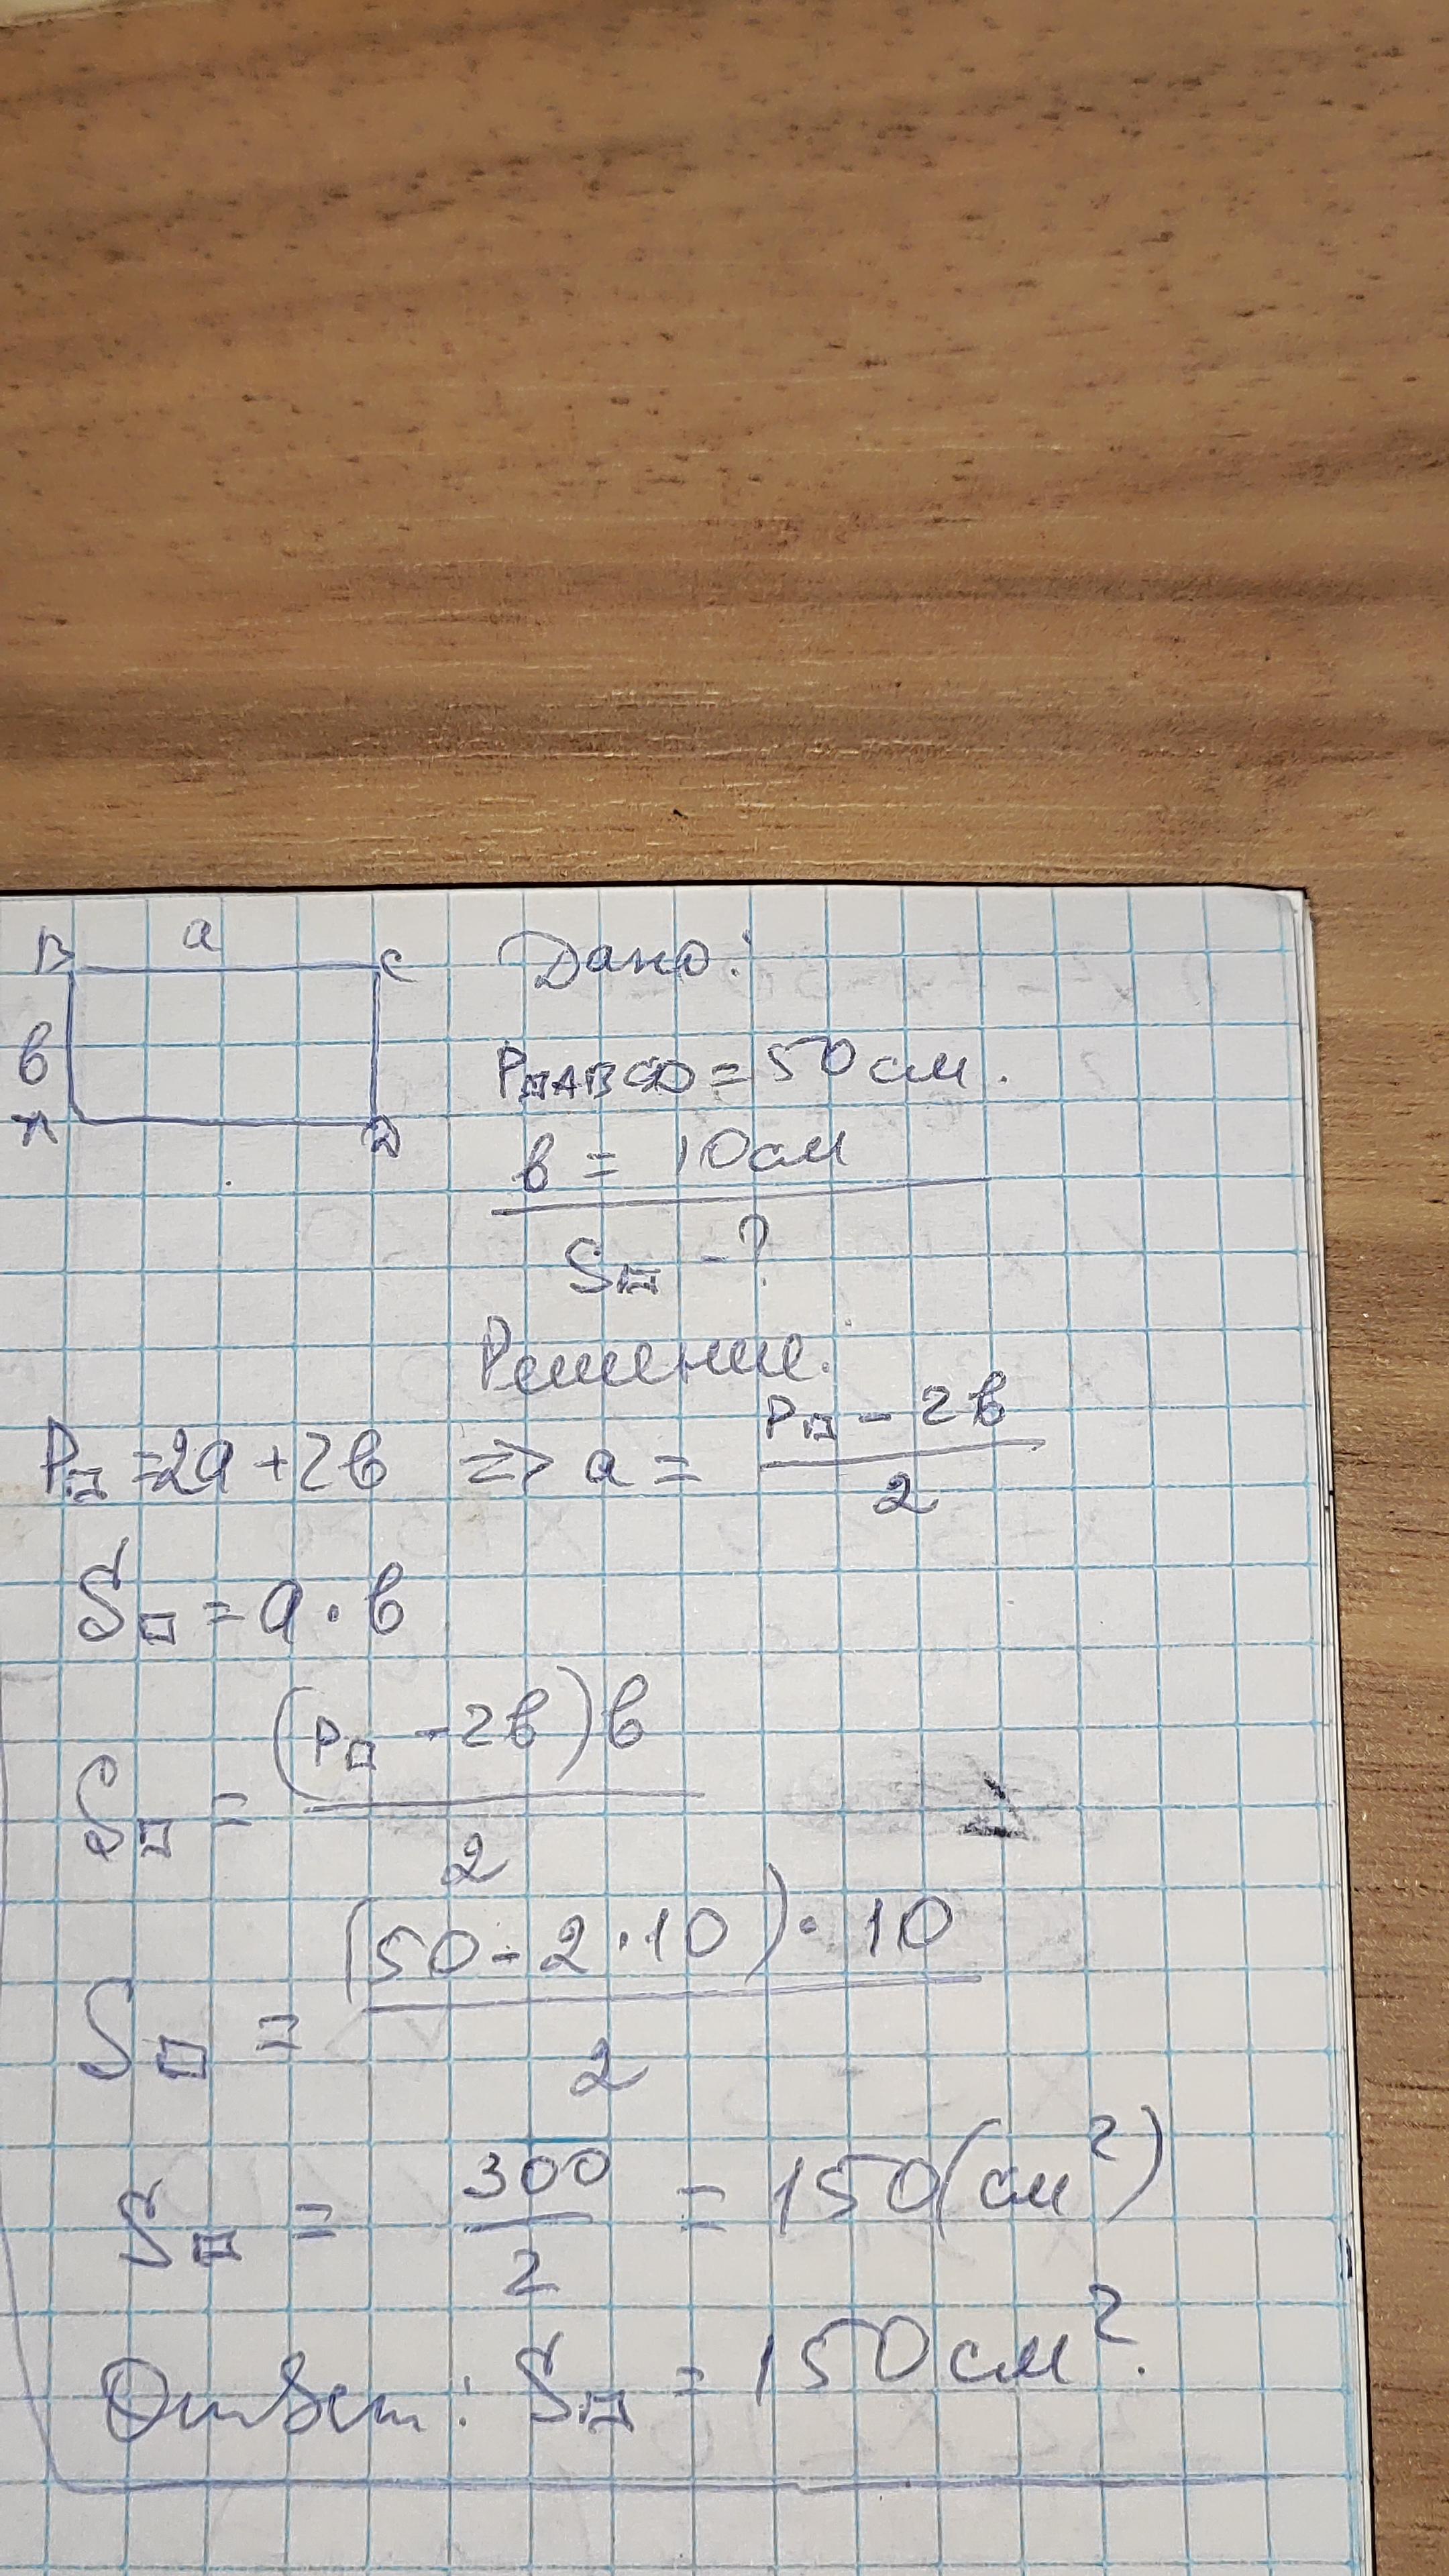 B a C
в
A D
Дано:
P□ABCD = 50 см.
в = 10 см
S□ - ?
Решение:
P□ = 2a + 2в => a = (P□ - 2в)/2
S□ = a · в
S□ = (P□ - 2в)в/2
S□ = (50 - 2 · 10) · 10/2
S□ = 300/2 = 150 (см²)
Ответ: S□ = 150 см².